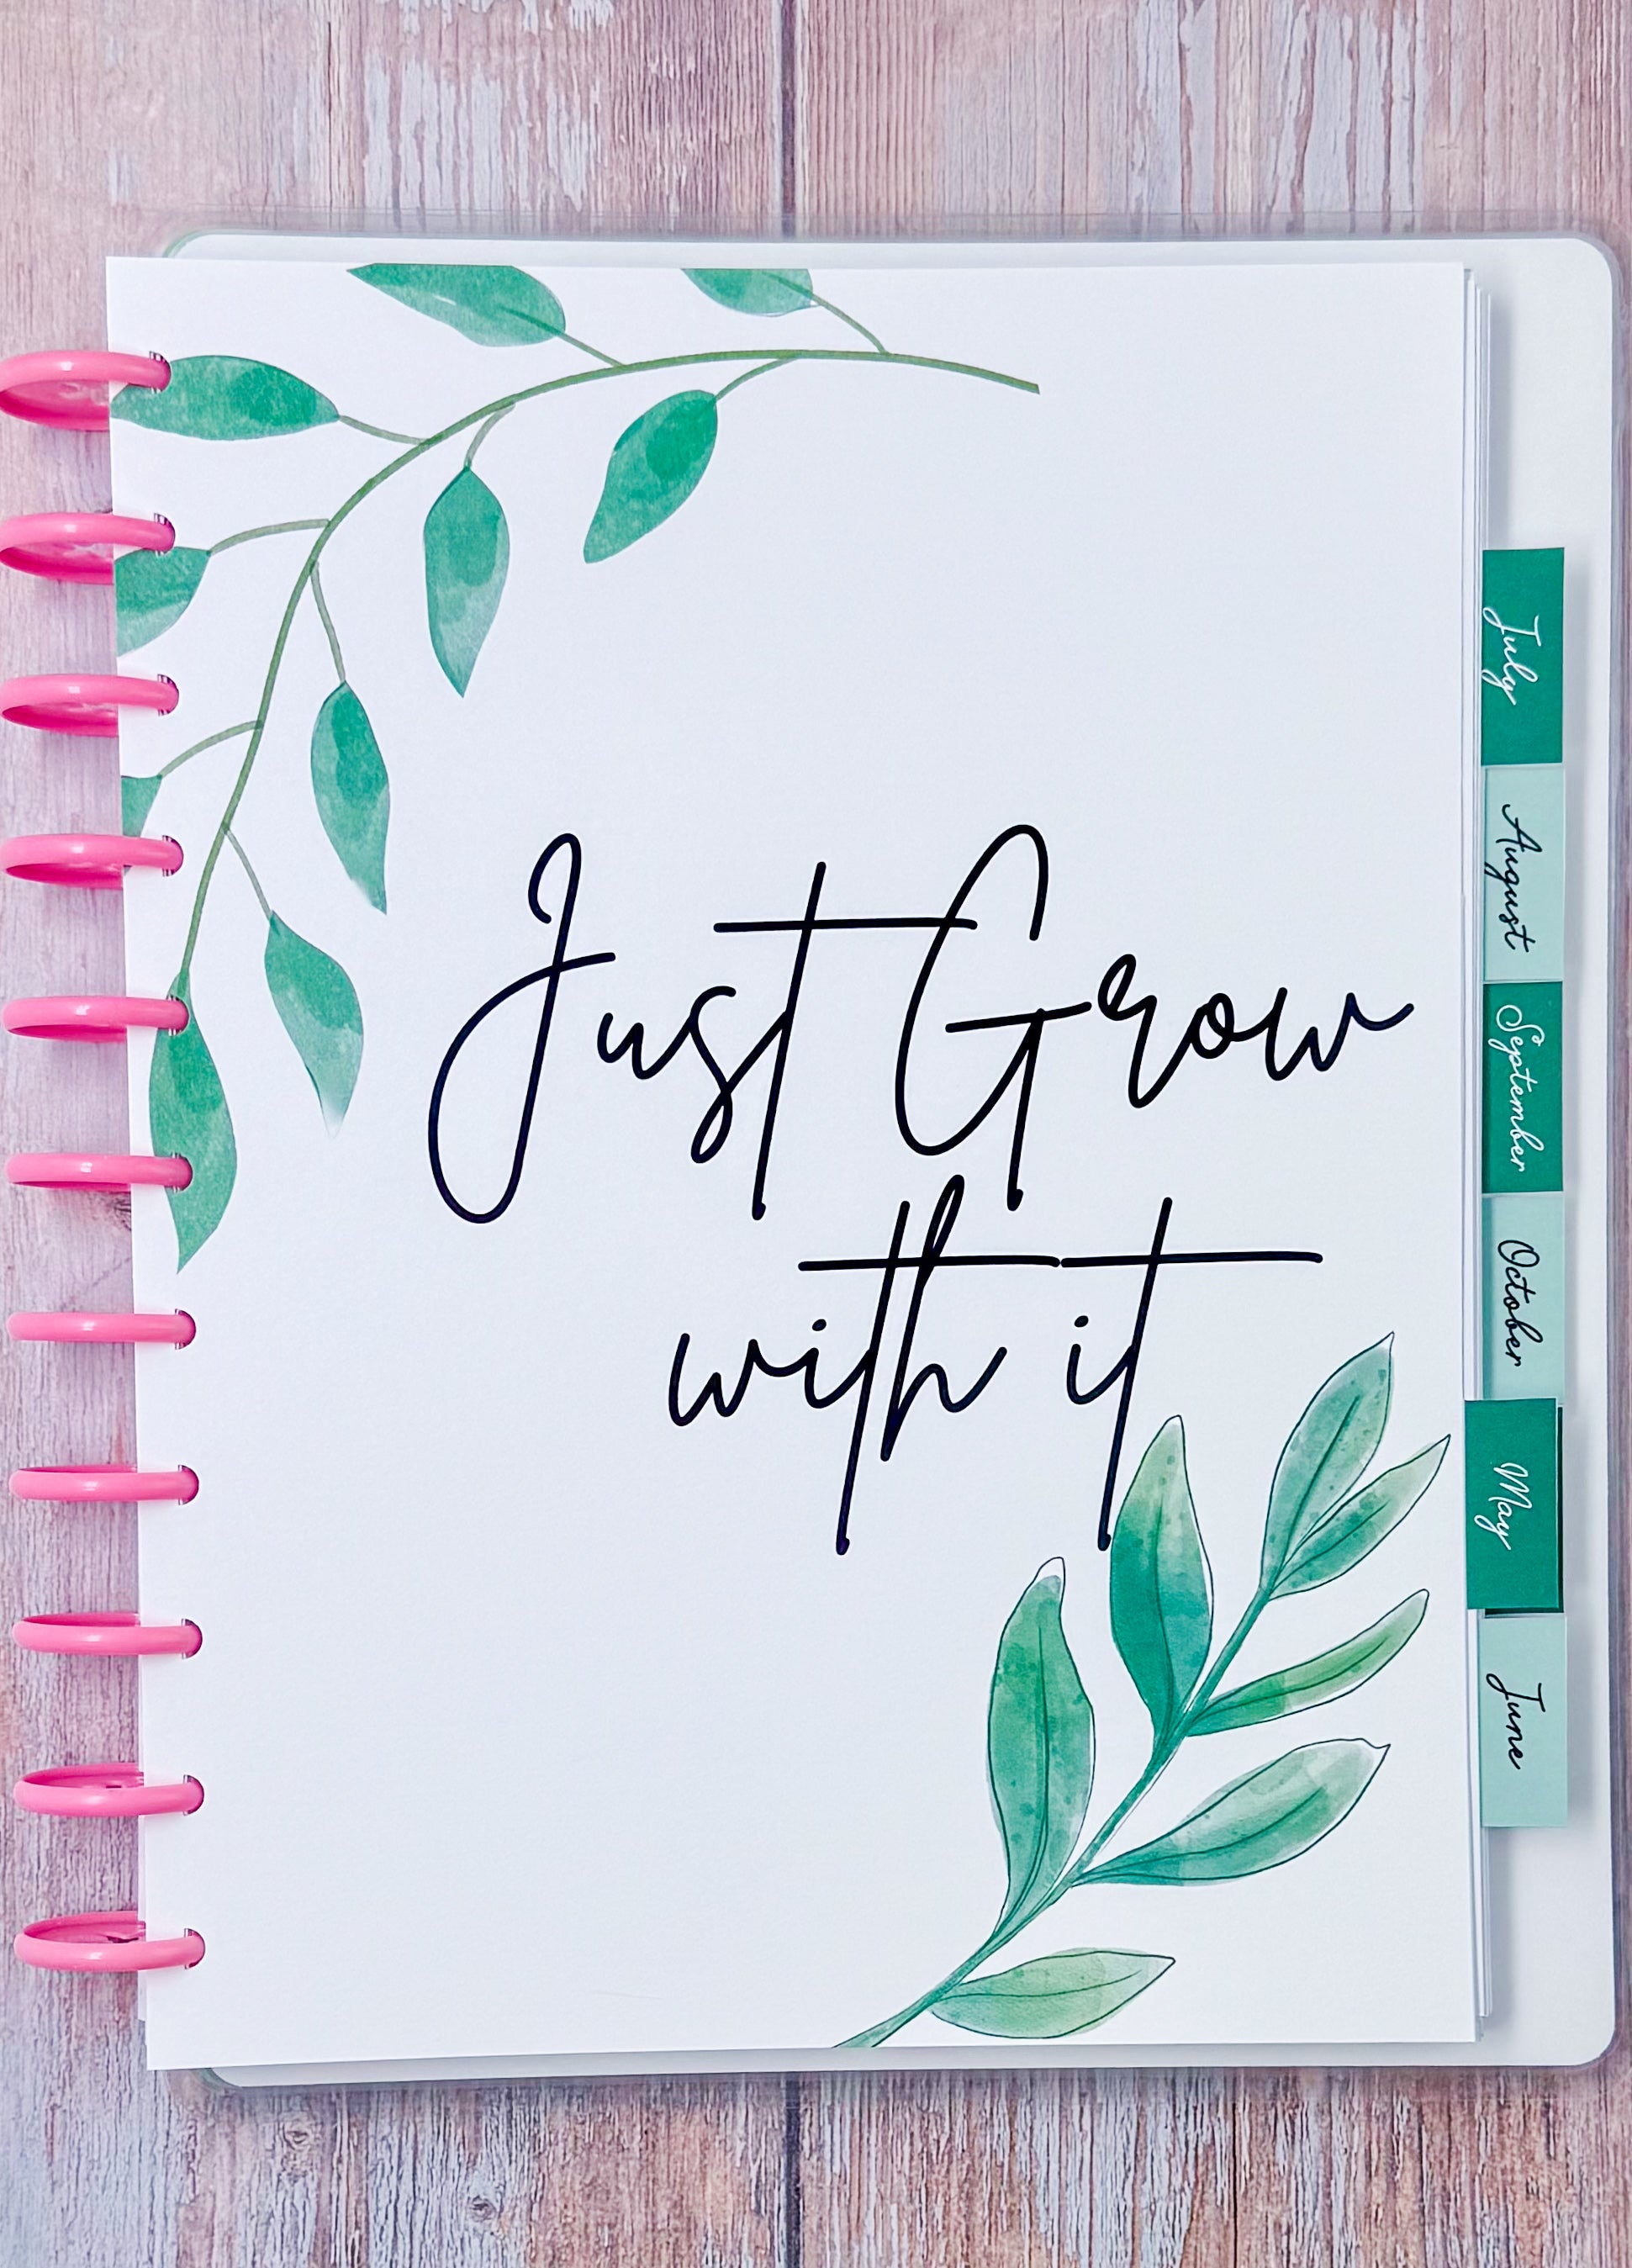 Just Grow
with it
July
August
September
October
May
June